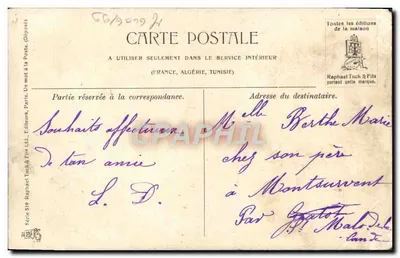 Toutes les éditions
de la maison
CARTE POSTALE
A UTILISER SEULEMENT DANS LE SERVICE INTÉRIEUR
(FRANCE, ALGÉRIE, TUNISIE)
Raphael Tuck & Fils
portent cette marque.
Partie réservée à la correspondance.
Adresse du destinataire.
Souhaits affectueux
de ton amie
L. D.
Melle Berthe Marie
chez son père
à Montsurvent
Par Gratot
St Malo de la
Lande
Raphael Tuck & Fils Ltd., Editeurs, Paris. Un mot à la Poste. (Déposé)